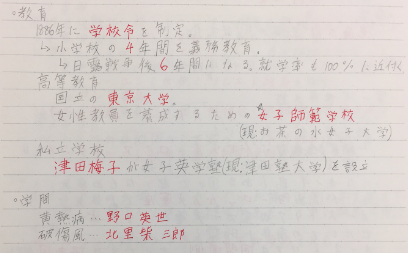 ・教育
1886年に学校令を制定。
↳小学校の4年間を義務教育。
↳日露戦争後、6年間になる。就学率も100%に近付く
高等教育
国立の東京大学。
女性教員を養成するための女子師範学校
(現:お茶の水女子大学)
私立学校
津田梅子が女子英学塾(現:津田塾大学)を設立
・学問
黄熱病…野口英世
破傷風…北里柴三郎